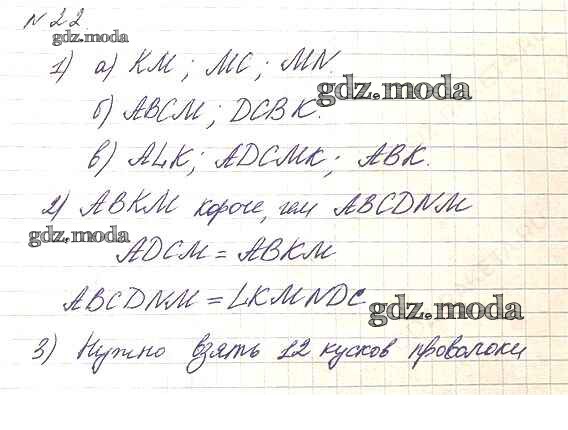 № 22
gdz.moda
1) а) КМ; МС; MN.
gdz.moda
б) АВСМ; DCBK.
в) ALK; ADCMK; ABK.
2) ABKM короче, чем ABCDNM
gdz.moda
ADCM = ABKM
ABCDNM = LKMNDC
gdz.moda
3) Нужно взять 12 кусков проволоки